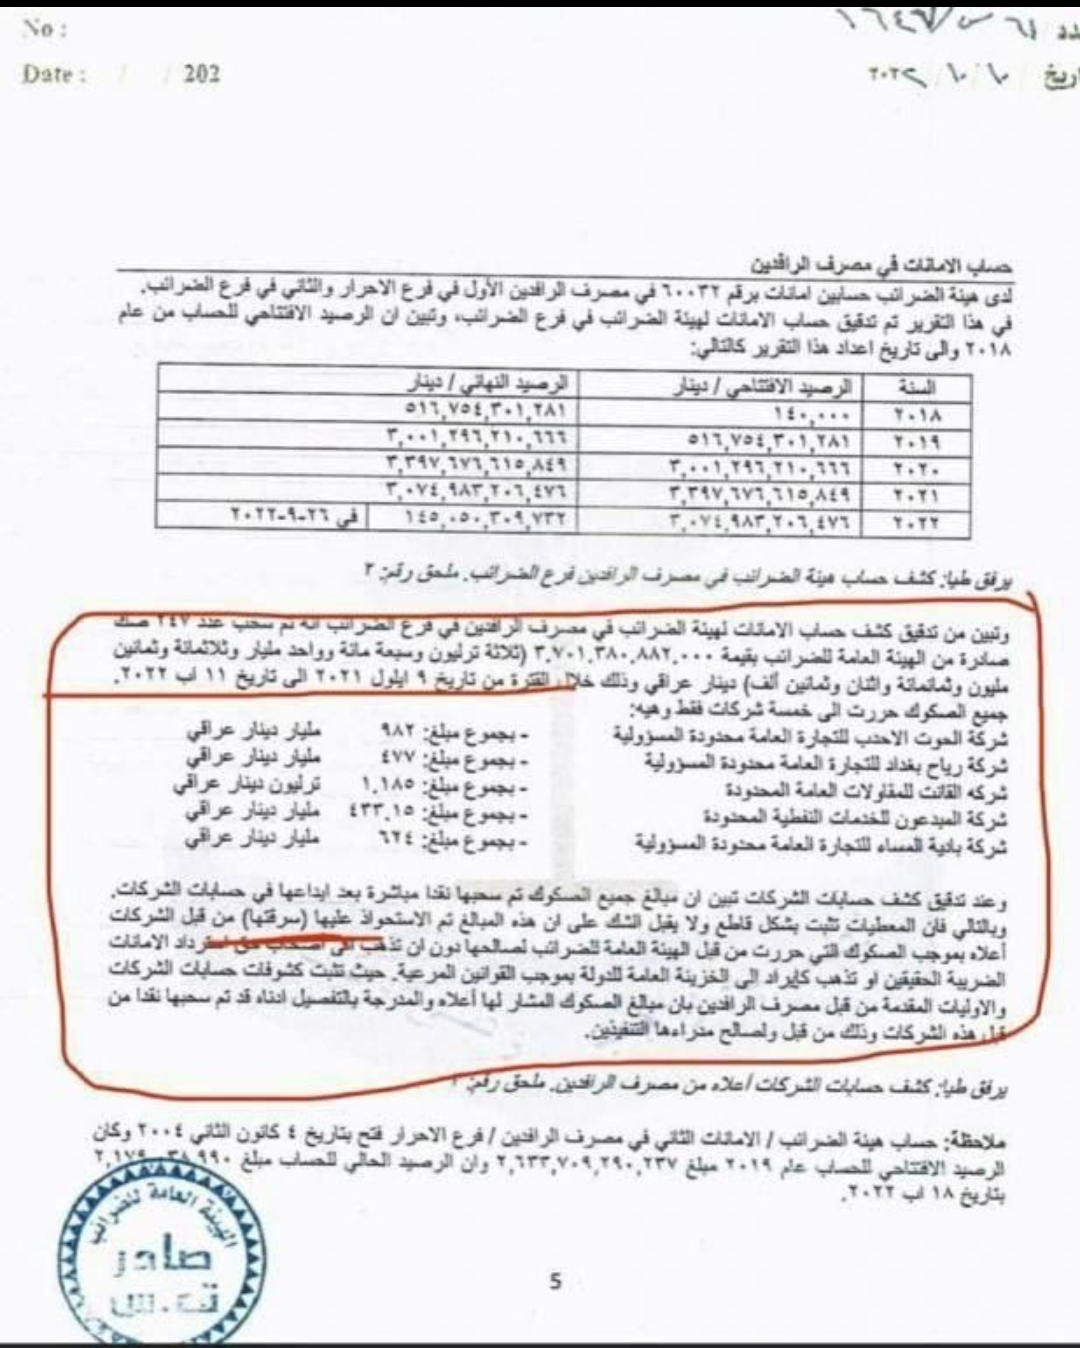 No :
Date : / / 202
عدد
تاريخ / ١٠ / ١٠ ٢٠٢٢
حساب الامانات في مصرف الرافدين
لدى هيئة الضرائب حسابين امانات برقم ٦٠٠٣٢ في مصرف الرافدين الأول في فرع الاحرار والثاني في فرع الضرائب.
في هذا التقرير تم تدقيق حساب الامانات لهيئة الضرائب في فرع الضرائب، وتبين ان الرصيد الافتتاحي للحساب من عام
٢٠١٨ والى تاريخ اعداد هذا التقرير كالتالي:
السنة الرصيد الافتتاحي / دينار الرصيد النهائي / دينار
٢٠١٨ ١٤٠,٠٠٠ ٥١٦,٧٥٤,٣٠١,٢٨١
٢٠١٩ ٥١٦,٧٥٤,٣٠١,٢٨١ ٣,٠٠١,٢٩٦,٢١٠,٦٦٦
٢٠٢٠ ٣,٠٠١,٢٩٦,٢١٠,٦٦٦ ٣,٣٩٧,٦٧٦,٦١٥,٨٤٩
٢٠٢١ ٣,٣٩٧,٦٧٦,٦١٥,٨٤٩ ٣,٠٧٤,٩٨٣,٢٠٦,٤٧٦
٢٠٢٢ ٣,٠٧٤,٩٨٣,٢٠٦,٤٧٦ ١٤٥,٠٥٠,٣٠٩,٧٣٢ في ٢٦-٩-٢٠٢٢
يرفق طيا: كشف حساب هيئة الضرائب في مصرف الرافدين فرع الضرائب. ملحق رقم: ٢
وتبين من تدقيق كشف حساب الامانات لهيئة الضرائب في مصرف الرافدين في فرع الضرائب انه تم سحب عدد ٢٤٧ صك
صادرة من الهيئة العامة للضرائب بقيمة ٣,٧٠١,٣٨٠,٨٨٢,٠٠٠ (ثلاثة ترليون وسبعة مائة وواحد مليار وثلاثمائة وثمانين
مليون وثمانمائة واثنان وثمانين ألف) دينار عراقي وذلك خلال الفترة من تاريخ ٩ ايلول ٢٠٢١ الى تاريخ ١١ اب ٢٠٢٢.
جميع الصكوك حررت الى خمسة شركات فقط وهيه:
شركة الحوت الاحدب للتجارة العامة محدودة المسؤولية - بجموع مبلغ: ٩٨٢ مليار دينار عراقي
شركة رياح بغداد للتجارة العامة محدودة المسؤولية - بجموع مبلغ: ٤٧٧ مليار دينار عراقي
شركه القانت للمقاولات العامة المحدودة - بجموع مبلغ: ١,١٨٥ ترليون دينار عراقي
شركة المبدعون للخدمات النفطية المحدودة - بجموع مبلغ: ٤٣٣,١٥ مليار دينار عراقي
شركة بادية المساء للتجارة العامة محدودة المسؤولية - بجموع مبلغ: ٦٢٤ مليار دينار عراقي
وعند تدقيق كشف حسابات الشركات تبين ان مبالغ جميع الصكوك تم سحبها نقدا مباشرة بعد ايداعها في حسابات الشركات.
وبالتالي فان المعطيات تثبت بشكل قاطع ولا يقبل الشك على ان هذه المبالغ تم الاستحواذ عليها (سرقتها) من قبل الشركات
أعلاه بموجب الصكوك التي حررت من قبل الهيئة العامة للضرائب لصالحها دون ان تذهب الى اصحاب حق استرداد الامانات
الضريبة الحقيقين او تذهب كإيراد الى الخزينة العامة للدولة بموجب القوانين المرعية. حيث تثبت كشوفات حسابات الشركات
والاوليات المقدمة من قبل مصرف الرافدين بان مبالغ الصكوك المشار لها أعلاه والمدرجة بالتفصيل ادناه قد تم سحبها نقدا من
قبل هذه الشركات وذلك من قبل ولصالح مدراءها التنفيذين.
يرفق طيا: كشف حسابات الشركات أعلاه من مصرف الرافدين. ملحق رقم:
ملاحظة: حساب هيئة الضرائب / الامانات الثاني في مصرف الرافدين / فرع الاحرار فتح بتاريخ ٤ كانون الثاني ٢٠٠٤ وكان
الرصيد الافتتاحي للحساب عام ٢٠١٩ مبلغ ٢,٦٣٣,٧٠٩,٢٩٠,٢٣٧ وان الرصيد الحالي للحساب مبلغ
بتاريخ ١٨ اب ٢٠٢٢.
الهيئة العامة للضرائب
صادر
5